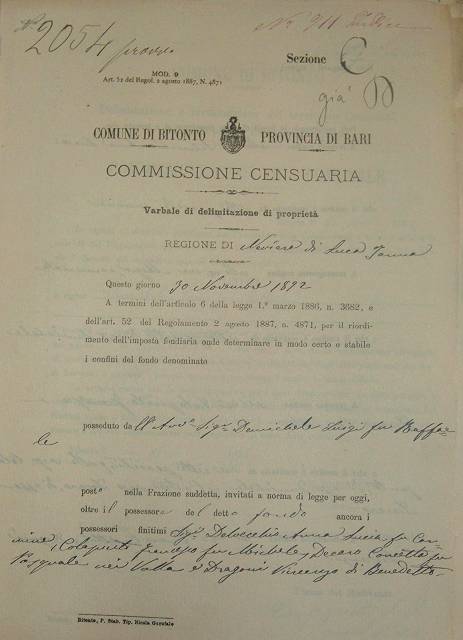 2054 provv
N. 711
Sezione C
già D
MOD. 9
Art. 52 del Regol. 2 agosto 1887, N. 4871
COMUNE DI BITONTO PROVINCIA DI BARI
COMMISSIONE CENSUARIA
Varbale di delimitazione di proprietà
REGIONE DI Neviera di Luca
Questo giorno 30 Novembre 1892
A termini dell'articolo 6 della legge 1.° marzo 1886, n. 3682, e
dell'art. 52 del Regolamento 2 agosto 1887, n. 4871, per il riordi-
mento dell'imposta fondiaria onde determinare in modo certo e stabile
i confini del fondo denominato
posseduto da Sig.r Demichele Luigi fu Raffae
le
posto nella Frazione suddetta, invitati a norma di legge per oggi,
oltre il possessore del detto fondo ancora i
possessori finitimi Sig.i Delvecchio Anna Lucia fu Car
mine, Colapinto Francesco fu Michele, Decaro Concetta fu
Pasquale e Dragoni Vincenzo di Benedetto
Bitonto, P. Stab. Tip. Nicola Garofalo